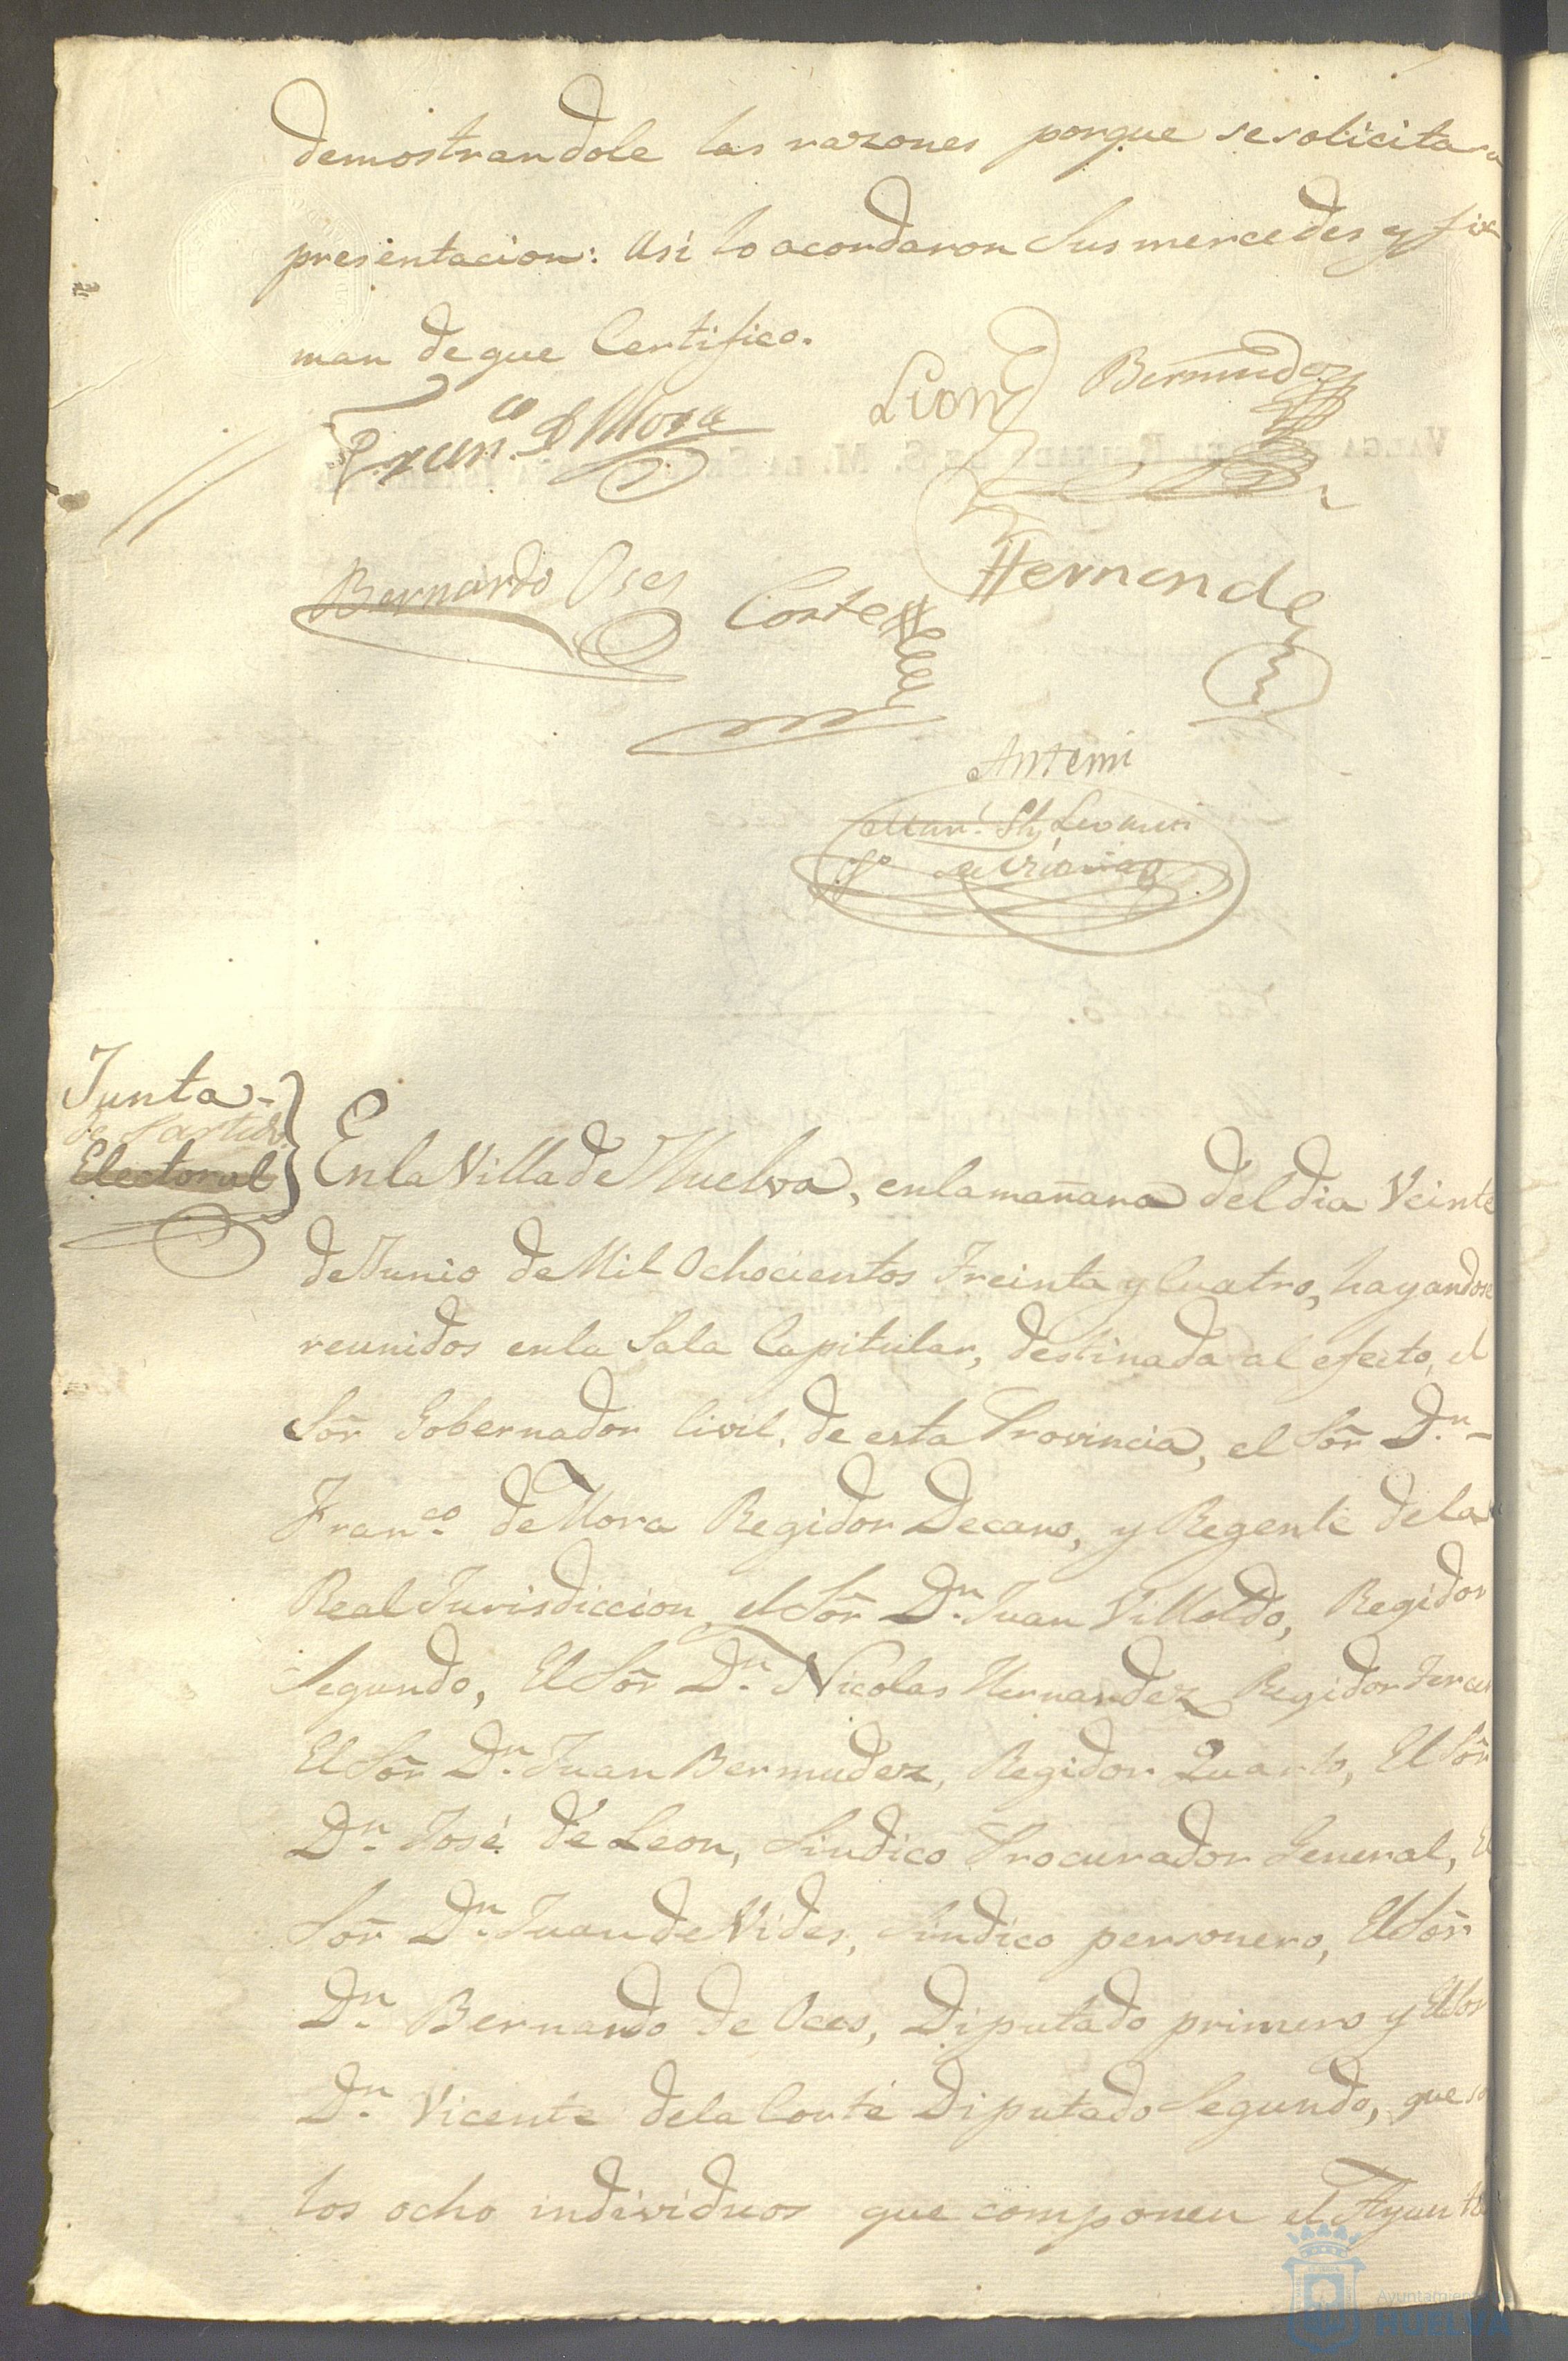 demostrandole las razones porque se solicita
presentacion: Asi lo acordaron Sus mercedes y fir
man de que Certifico.
Fran.co D Mora
Leon
Bermudez
Bernardo Oses
Corte
Hernande
Antemi
Junta-
de Partido
Electoral
En la Villa de Huelva, en la mañana del dia Veinte
de Junio de Mil Ochocientos Treinta y Cuatro, hayandose
reunidos en la Sala Capitular, destinada al efecto, el
Sōr Gobernador Civil, de esta Provincia, el Sōr D.n -
Fran.co de Mora Regidor Decano, y Regente de la
Real Jurisdiccion, el Sōr D.n Juan Villoldo, Regidor
Segundo, El Sōr D.n Nicolas Hernandez Regidor Tercer
El Sōr D.n Juan Bermudez, Regidor Quarto, El Sōr
D.n José de Leon, Sindico Procurador General, El
Sōr D.n Juan de Vides, Sindico personero, El Sōr
D.n Bernardo de Oces, Diputado primero y El Sor
D.n Vicente de la Corte Diputado Segundo, que so
los ocho individuos que componen el Ayunta
Ayuntamien
HUELVA